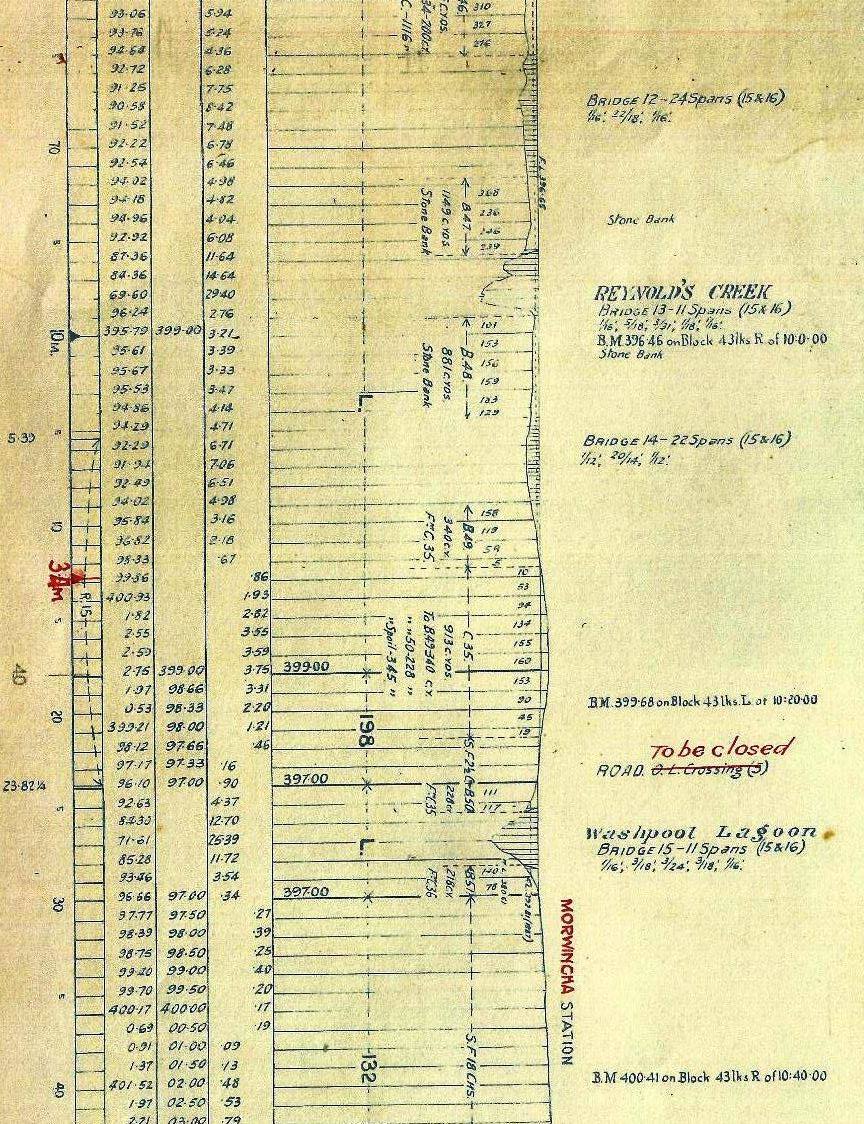 93.06 5.94 310
93.76 5.24 327
94.64 4.36 276
92.72 6.28
91.25 7.75
90.58 8.42
91.52 7.48
92.22 6.78
92.54 6.46
94.02 4.98
94.18 4.82
94.96 4.04
92.92 6.08
87.36 11.64
84.36 14.64
69.60 29.40
96.24 2.76
10M. 395.79 399.00 3.21
95.61 3.39
95.67 3.33
95.53 3.47
94.86 4.14
94.29 4.71
92.29 6.71
91.94 7.06
92.49 6.51
94.02 4.98
95.84 3.16
96.82 2.18
98.33 .67
99.86 .86
400.93 1.93
1.82 2.82
2.55 3.55
2.59 3.59
2.75 399.00 3.75 399.00
1.97 98.66 3.31
0.53 98.33 2.20
399.21 98.00 1.21
98.12 97.66 .46
97.17 97.33 .16
96.10 97.00 .90 397.00
92.63 4.37
84.30 12.70
71.61 25.39
85.28 11.72
93.46 3.54
96.66 97.00 .34 397.00
97.77 97.50 .27
98.39 98.00 .39
98.75 98.50 .25
99.20 99.00 .40
99.70 99.50 .20
400.17 400.00 .17
0.69 00.50 .19
0.91 01.00 .09
1.37 01.50 .13
401.52 02.00 .48
1.97 02.50 .53
2.21 03.00 .79
70
5
5
10
5
20
5
30
5
40
5.39
40
23.82¼
R.15
L.
198
L.
132
B.47
1149 c.yds.
Stone Bank
368
236
246
239
F.L. 396.65
B.48
881 c.yds.
Stone Bank
101
153
156
159
183
129
B.49
340 c.y.
Fm C.35.
158
119
59
5
C.35.
913 c.yds.
To B.49-340 c.y.
" " 50-228 "
" Spoil-345 "
10
53
94
134
155
160
153
90
45
19
111
117
S.F. 18 Chs.
BRIDGE 12 - 24 Spans (15 & 16)
1/16', 22/18', 1/16'.
Stone Bank
REYNOLD'S CREEK
BRIDGE 13 - 11 Spans (15 & 16)
B.M. 396.46 on Block 43 lks R. of 10.0.00
Stone Bank
BRIDGE 14 - 22 Spans (15 & 16)
1/12', 20/14', 1/12'.
B.M. 399.68 on Block 43 lks. L. at 10.20.00
To be closed
ROAD. O.L. Crossing (5)
Washpool Lagoon
BRIDGE 15 - 11 Spans (15 & 16)
1/16', 3/18', 3/24', 3/18', 1/16'.
MORWINCHA STATION
B.M 400.41 on Block 43 lks R of 10.40.00